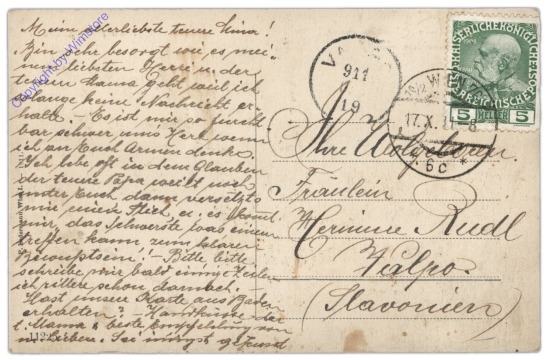 Meine allerliebste teure Mina!
Bin sehr besorgt wie es mei-
nen liebsten Herrn u. der
teuren Mama geht weil ich
solange keine Nachricht er-
halte. – Es ist mir so furcht
bar schwer ums Herz wenn
ich an Euch Armen denke.
Ich lebe oft in dem Glauben
der teure Papa weilt noch
unter Euch dann versetzts
mir einen Stich u. es kommt
mir, das Schwerste was einen
treffen kann zum klaren
Bewusstsein! – Bitte, bitte
schreibe mir bald einige Zeilen
ich zittere schon darnach. –
Hast unsere Karte aus Baden
erhalten? – Handküsse der
l. Mama & beste Empfehlung
Lieben. Sei innigst geküsst
Copyright by Wimstore
911
19
WIEN
17.X.
6c *
5 HELLER 5
Ihre Wolgeboren
Fräulein
Hermine Rudl
Valpo
(Slavonien)